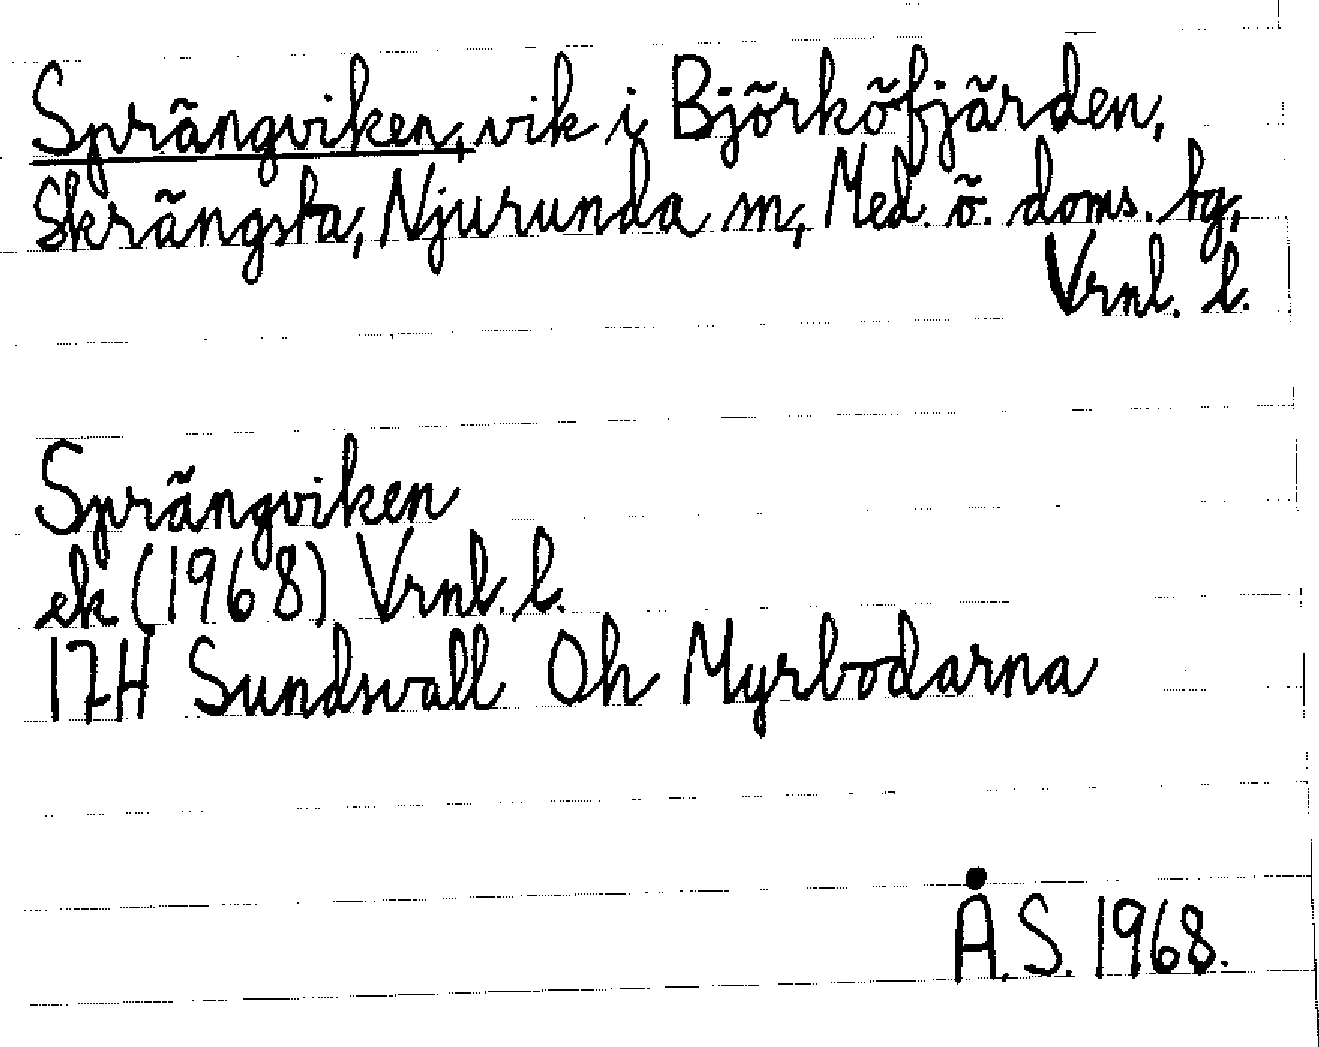 Sprängviken, vik i Björköfjärden,
Skrängsta, Njurunda sn, Med. ö. doms. tg,
Vrnl. l.
Sprängviken
ek (1968) Vrnl. l.
17H Sundsvall Oh Myrbodarna
Å.S. 1968.